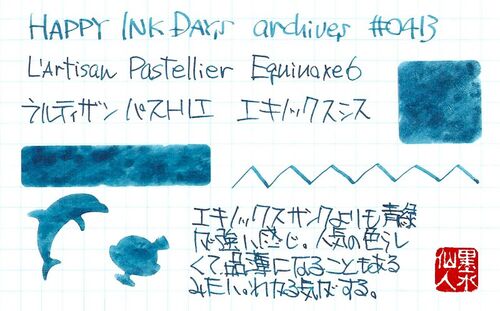 HAPPY INK DAYS archives #0413
L'Artisan Pastellier Equinoxe6
ラルティザン パストリエ エキノックスシス
エキノックスサンクよりも青緑
が強い感じ。人気の色らし
くて品薄になることもある
みたい。わかる気がする。
墨水
仙人